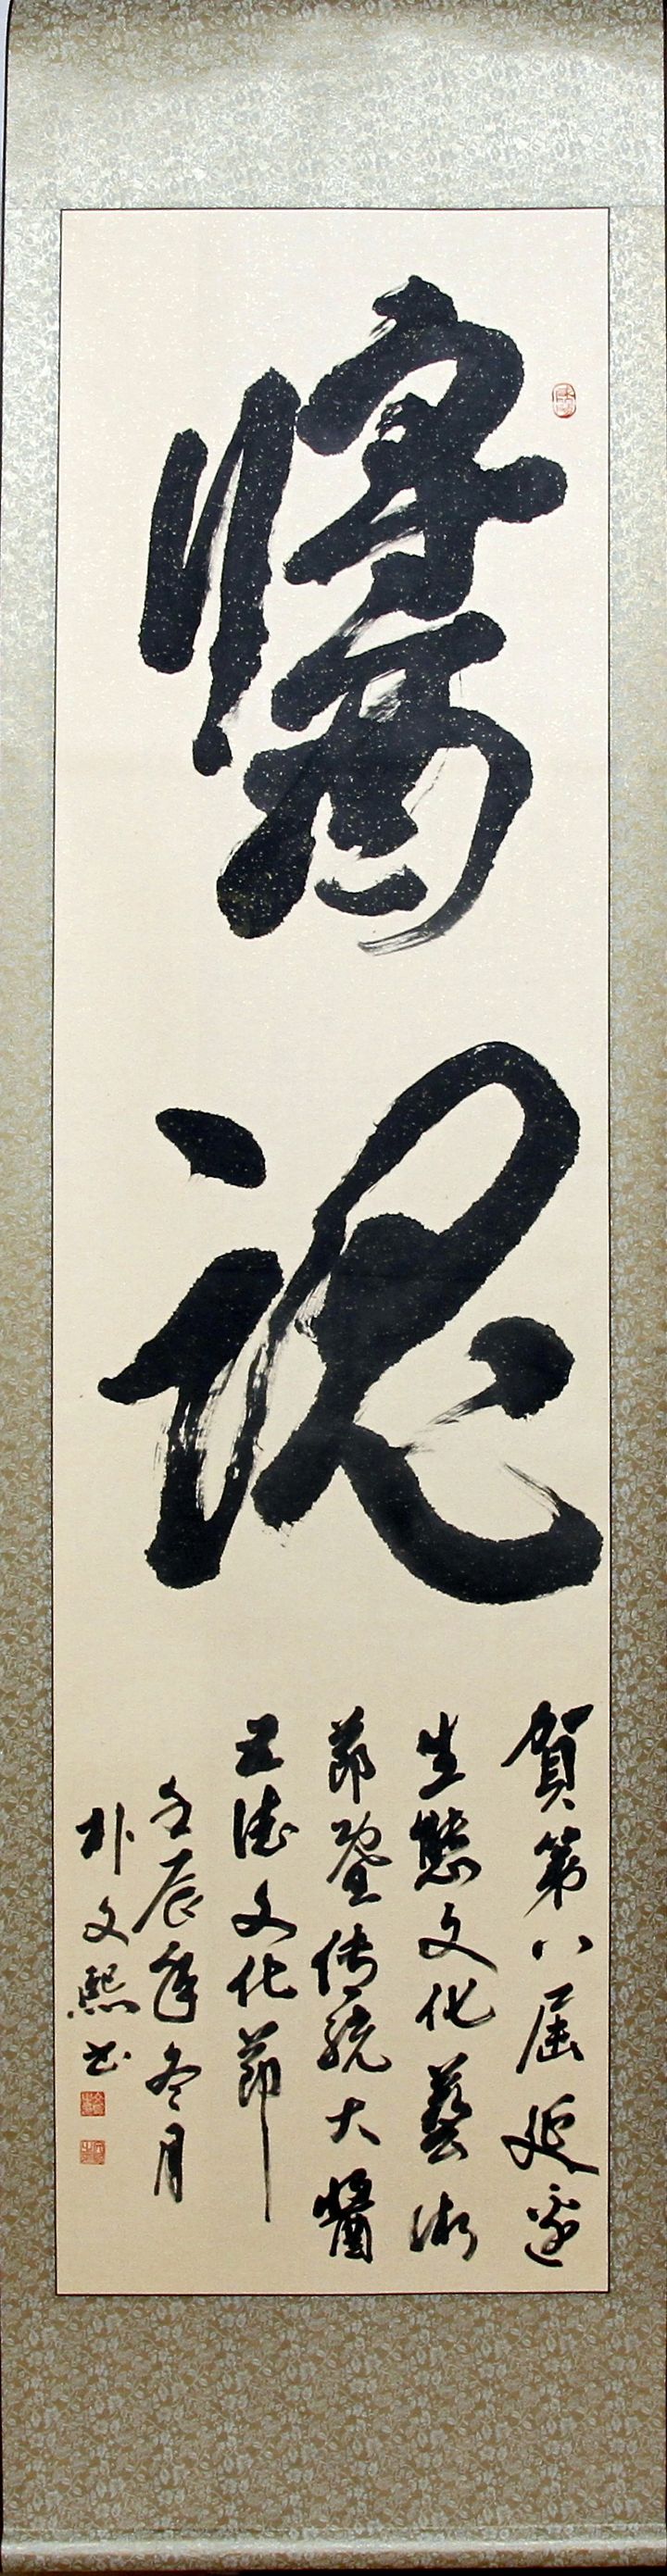 醬魂
賀第八届延邊
生態文化藝術
節暨傳統大醬
五德文化節
壬辰年冬月
朴文熙书